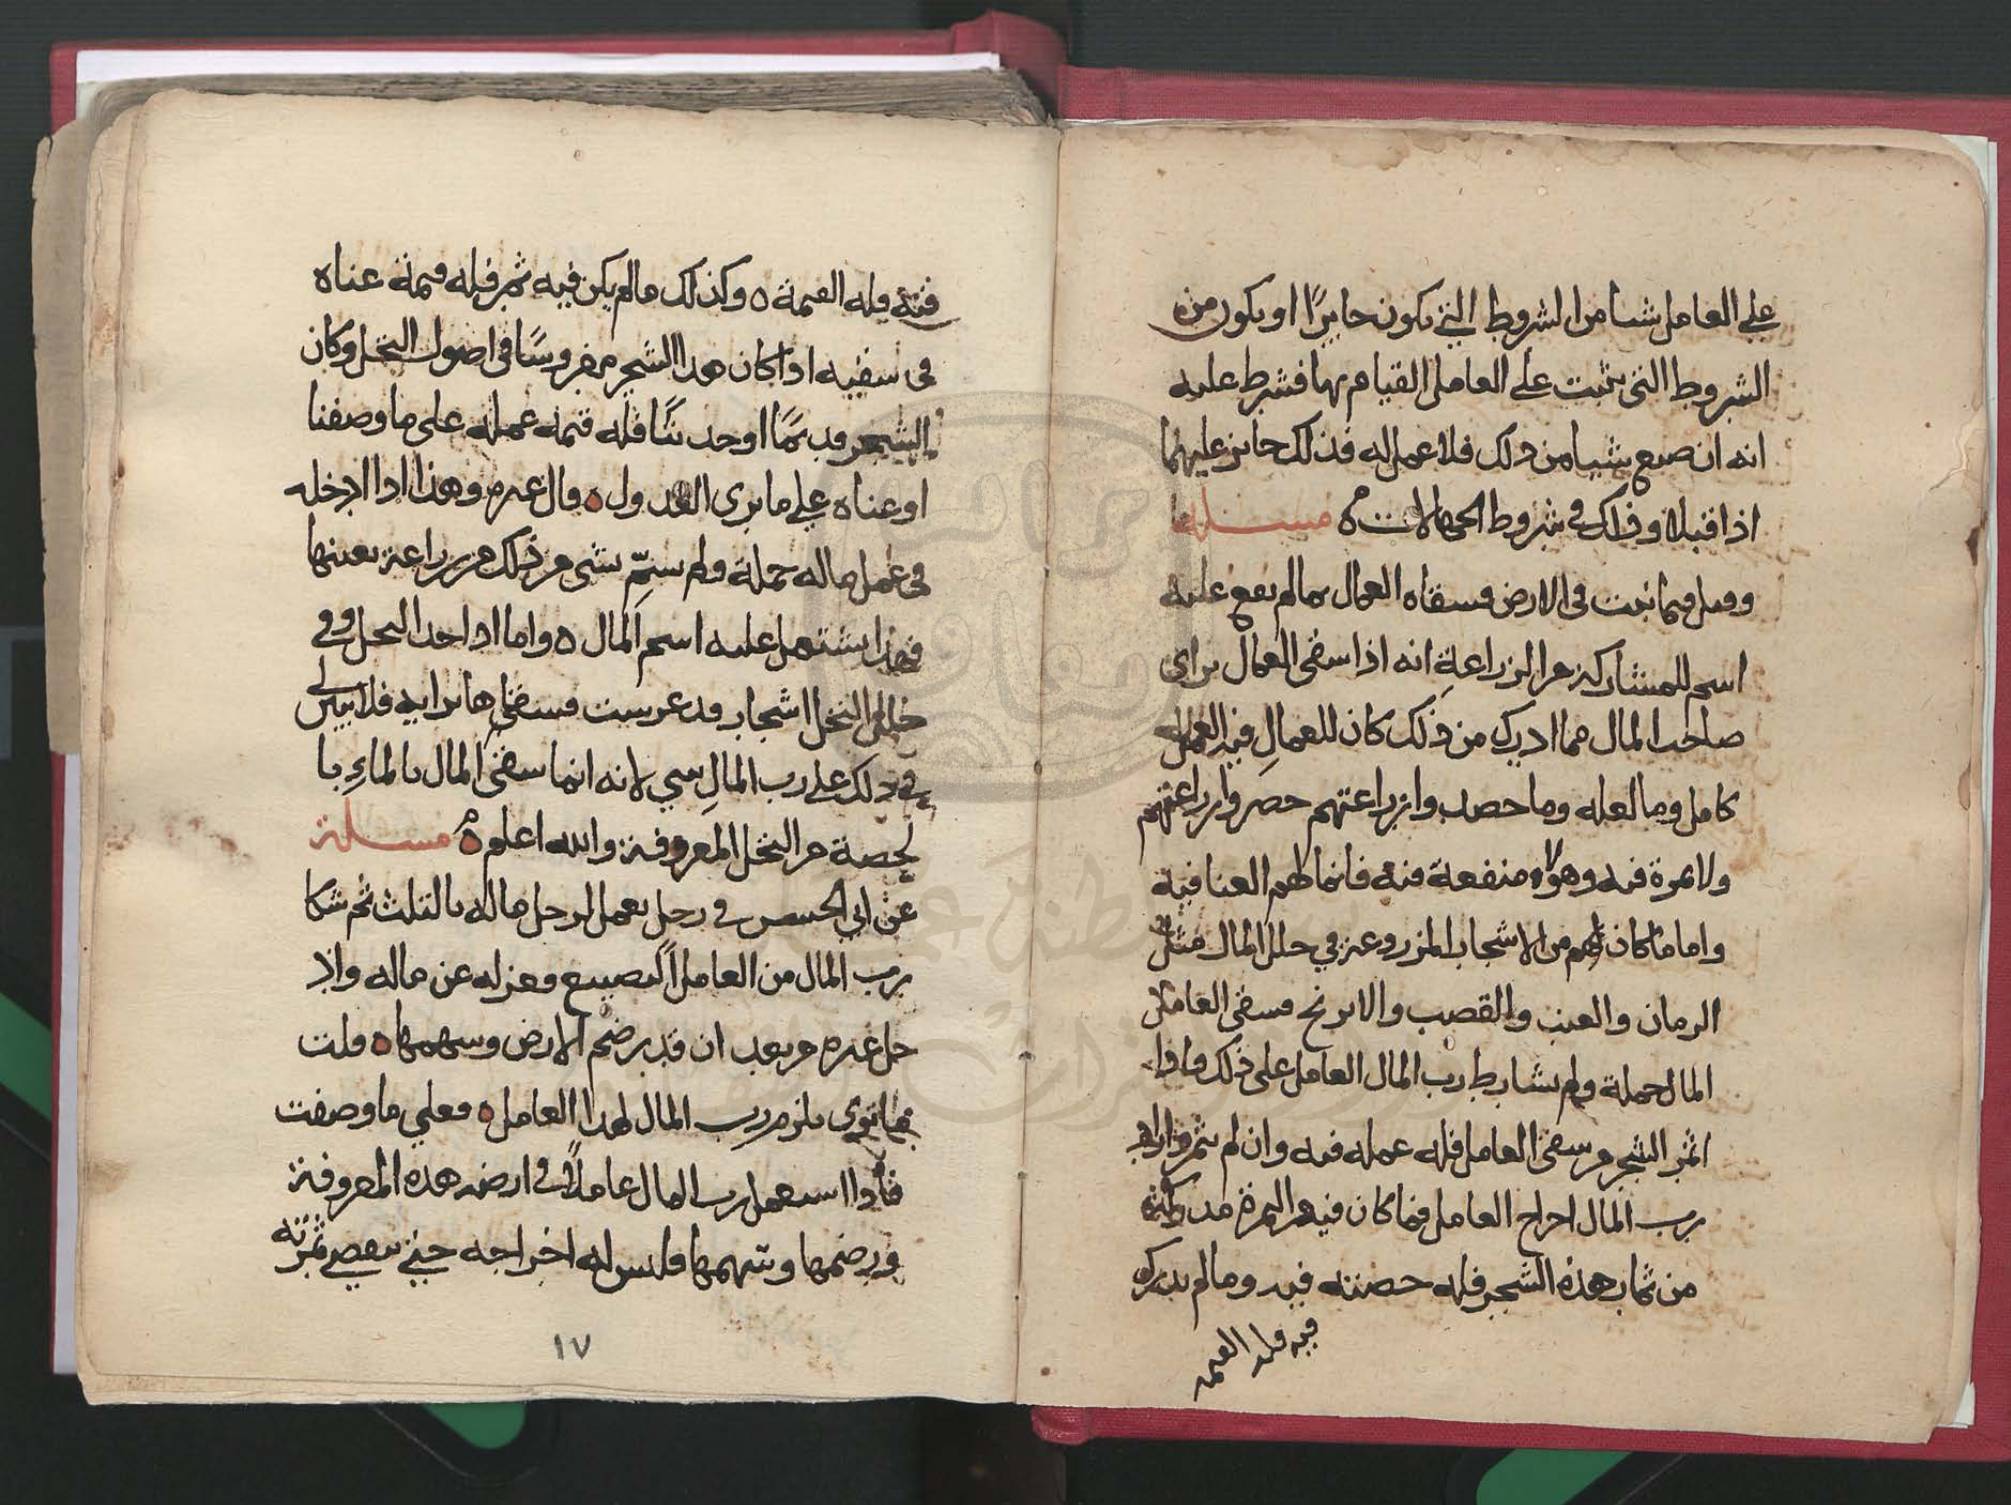 على العامل شيا من الشروط التي يكون جايزًا او يكون من
الشروط التي يثبت على العامل القيام بها فشرط عليه
انه ان ضيع شيا من ذلك فلا عمل له فذلك جايز عليهما
اذا قبله وذلك في شروط الجهالات ه مسله
وقيل فيما نبت في الارض وسقاه العمال مما لم يقع عليه
اسم للمشاركة من الزراعة انه اذا سقى العمال براي
صاحب المال فما ادرك من ذلك كان للعمال فيه العمل
كامل وما لعله وما حصد وا زراعتهم حصروا زراعتهم
ولا ثمرة فيه وهولاء منفعة فيه فانما لهم العنا فيه
واما ما كان لهم من الاشجار المزروعة في خلل المال مثل
الرمان والعنب والقصب والاترنج فسقى العامل
المال جملة ولم يشارط رب المال العامل على ذلك فاذا
اثمر الشجر من سقى العامل فله عمله فيه وان لم يثمر واراد
رب المال اخراج العامل فما كان فيه من الثمرة مدركة
من ثمار هذه الشجر فله حصته فيه وما لم يدرك
فيه فله القيمه
فيه فله القيمة ه وكذلك ما لم يكن فيه ثمر فله قيمة عناه
في سقيه اذا كان هذا الشجر مغروسًا في اصول النخل وكان
الشجر قد نما او حد نبتًا فله قيمة عمله على ما وصفنا
او عناه على ما يرى العدول ه قال غيره وهذا اذا ادخله
في عمل ماله جملة ولم يسمّ بشي من ذلك من زراعة بعينها
فهذا يشتمل عليه اسم المال ه واما اذا اخذ النخل وفي
خلل النخل اشجار قد غرست فسقاها برايه فلا يبين لي
في ذلك على رب المال شي لانه انما سقى المال بالماء با
لحصة من النخل المعروفة والله اعلم ه مسلة
عن ابي الحسن في رجل يعمل لرجل ماله بالثلث ثم شكا
رب المال من العامل التضييع وعزله عن ماله واد
خل غيره من بعد ان قد رضم الارض وسهمها ه قلت
فما ترى يلزم رب المال لهذا العامل ه فعلى ما وصفت
فاذا استعمل رب المال عاملًا في ارضه هذه المعروفة
ورضمها وسهمها فليس له اخراجه حتى تنقضي ثمرته
١٧